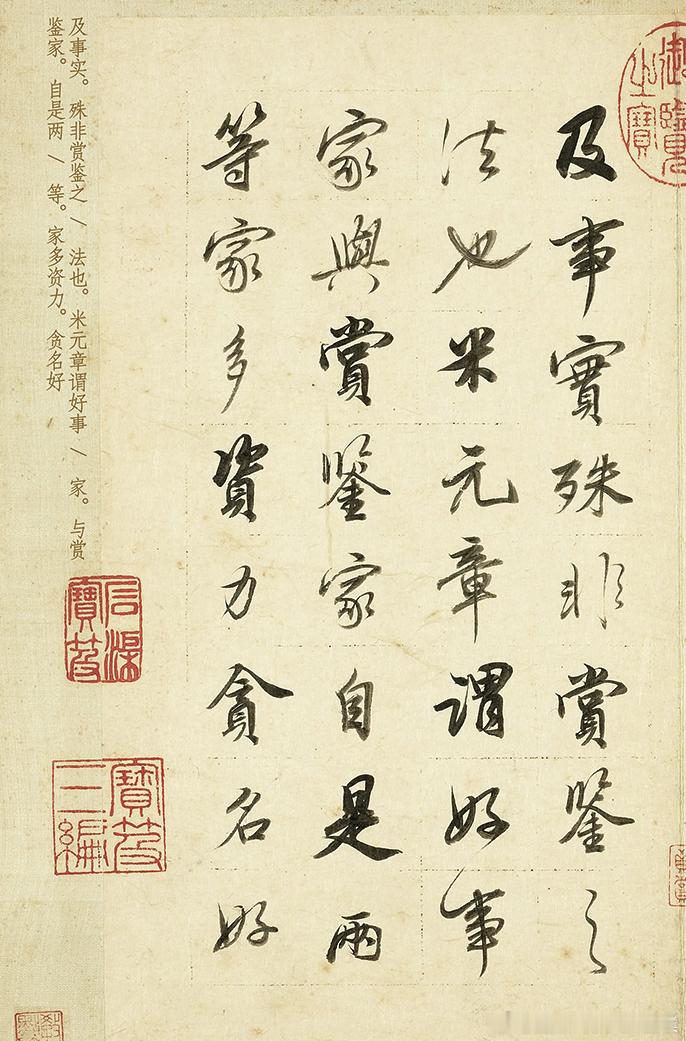 及事實殊非賞鑒之
法也米元章謂好事
家與賞鑒家自是兩
等家多資力貪名好
及事实。殊非赏鉴之 \ 法也。米元章谓好事 \ 家。与赏
鉴家。自是两 \ 等。家多资力。贪名好
御覽之寶
石渠寶笈
寶笈三編